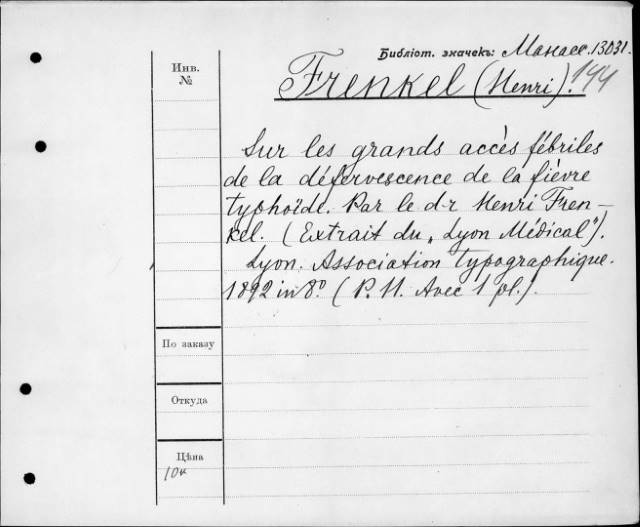 Библіот. значекъ: Манасс. 13031.
Инв.
№
Frenkel (Henri).
144
Sur les grands accès fébriles
de la défervescence de la fièvre
typhoïde. Par le d-r Henri Fren-
kel. (Extrait du „Lyon Médical").
Lyon. Association typographique.
1892 in 8º. (P. 11. Avec 1 pl.).
По заказу
Откуда
Цѣна
10к